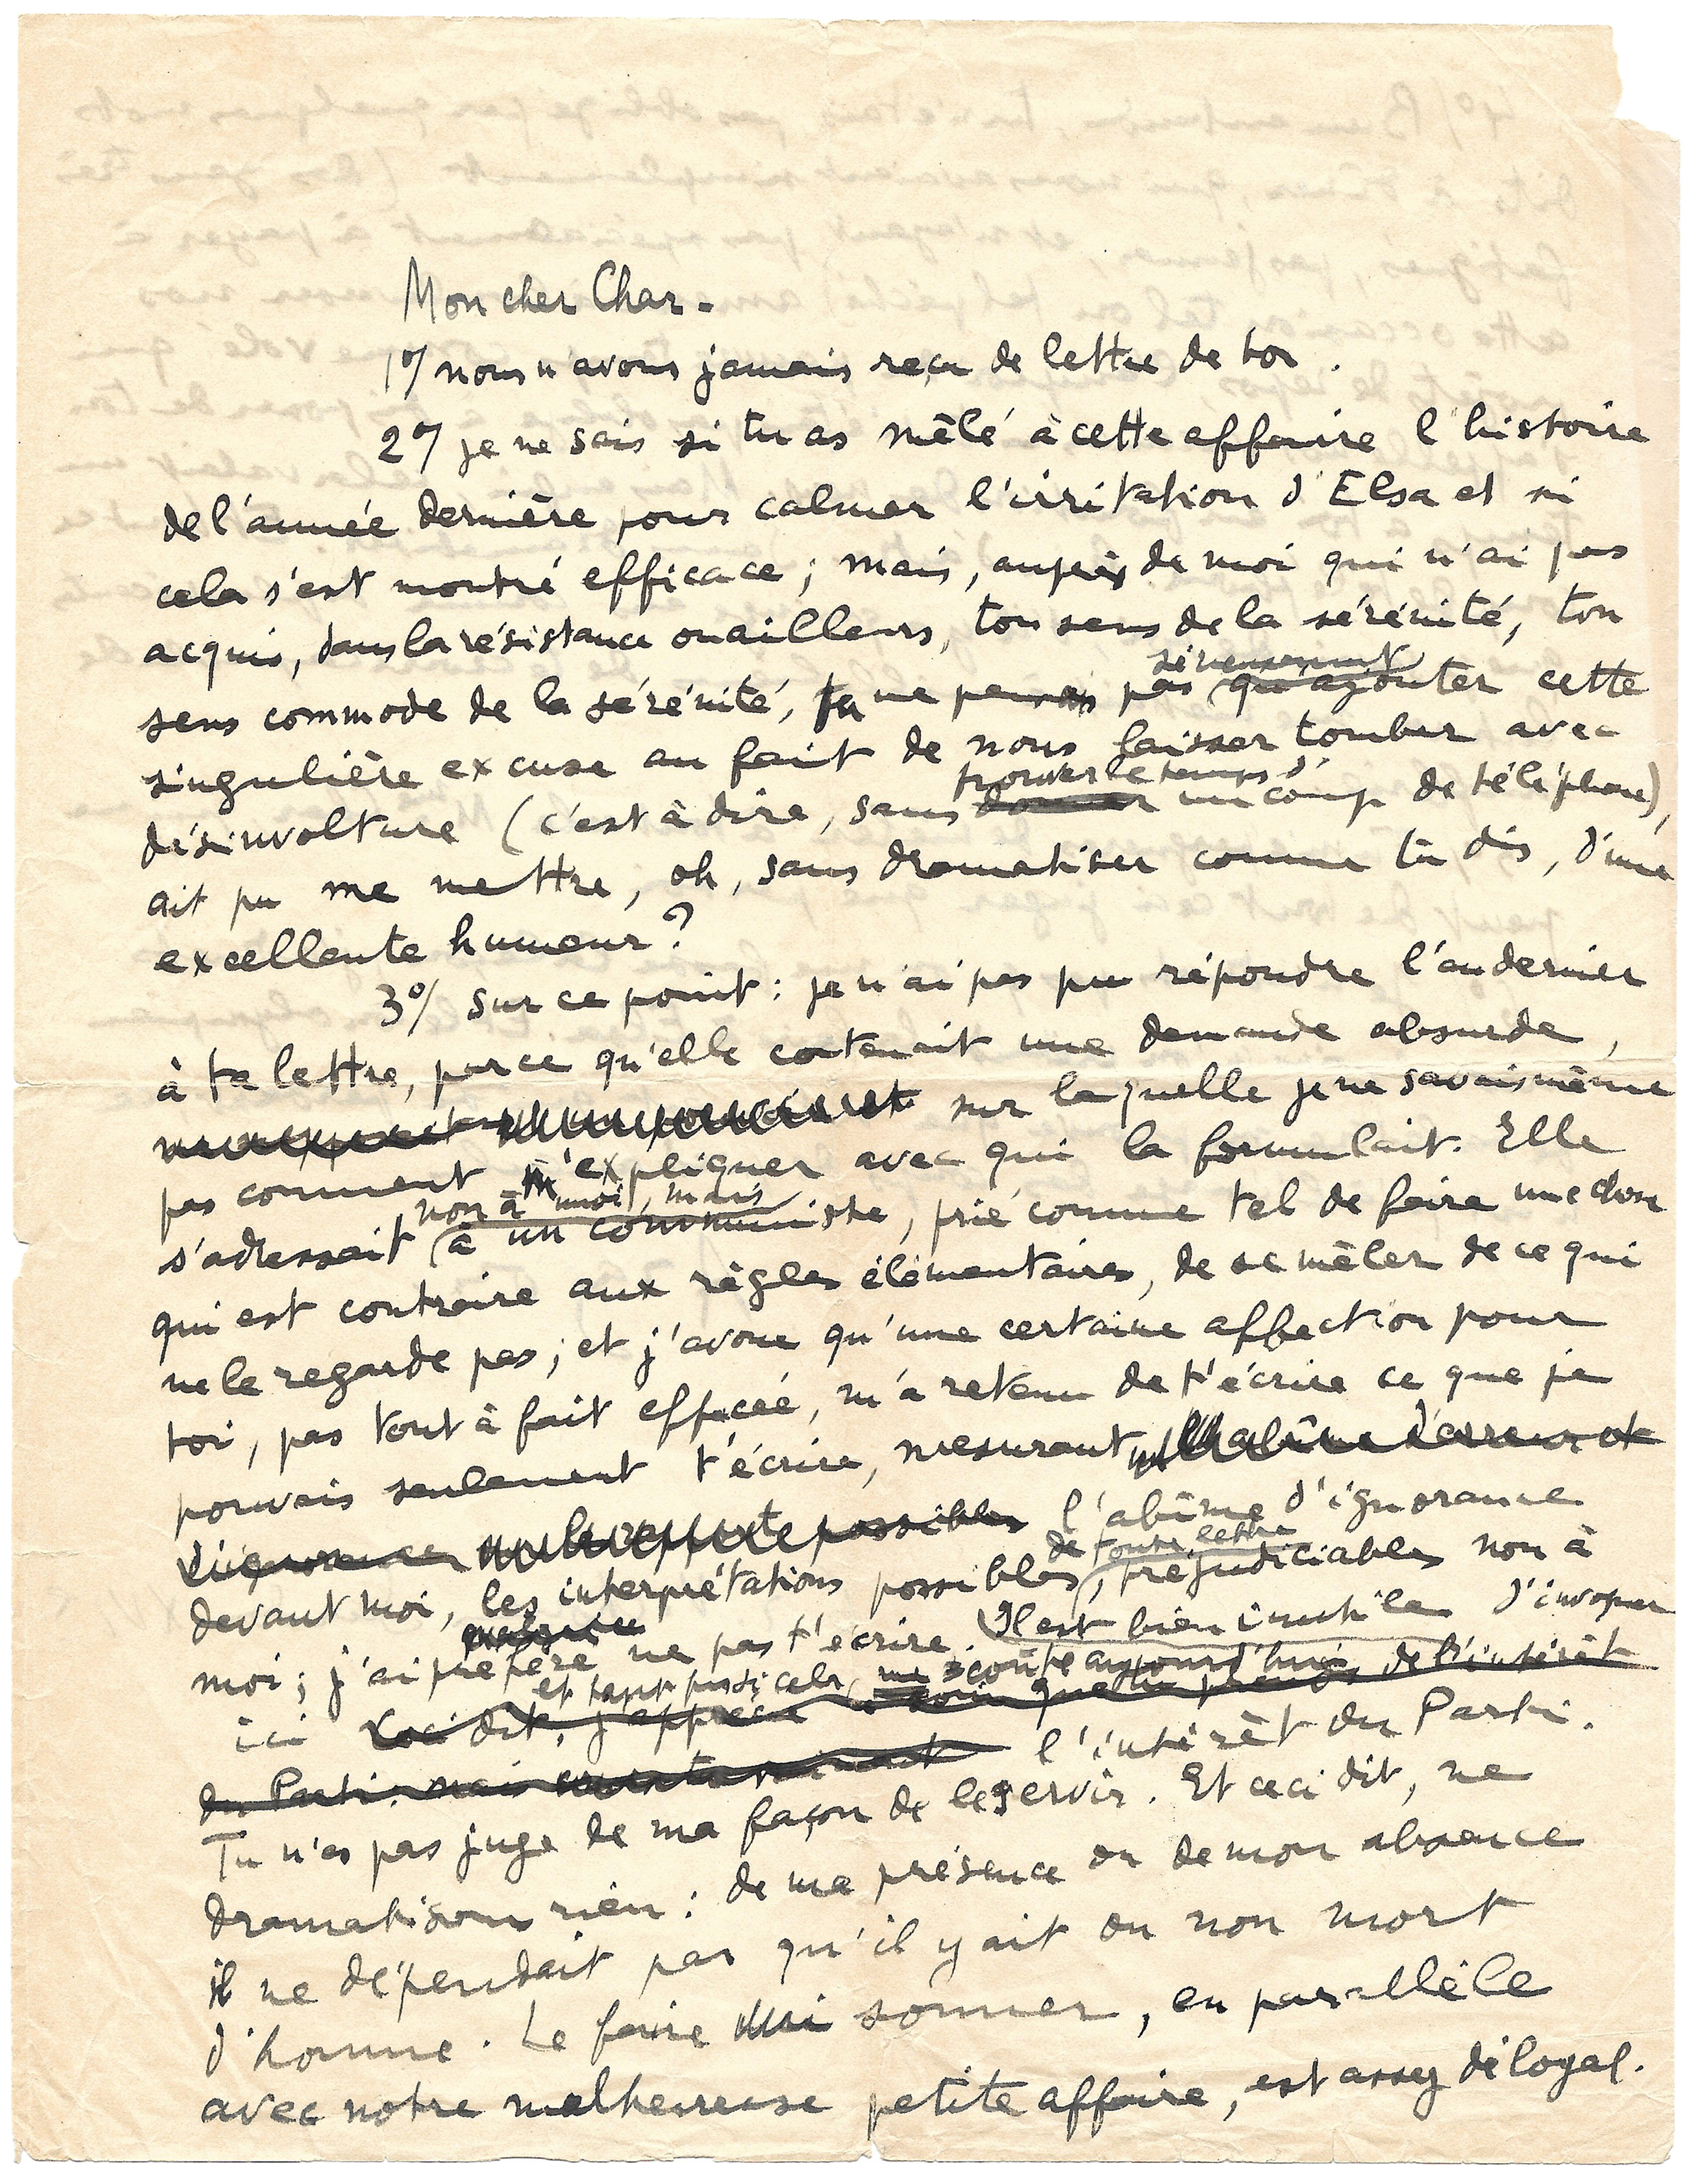 Mon cher Char.
1°/ nous n'avons jamais reçu de lettre de toi.
2°/ je ne sais si tu as mêlé à cette affaire l'histoire
de l'année dernière pour calmer l'irritation d'Elsa et si
cela s'est montré efficace ; mais, auprès de moi qui n'ai pas
acquis, dans la résistance ou ailleurs, ton sens de la sérénité, ton
sérieusement
sens commode de la sérénité, tu ne penses pas qu'ajouter cette
singulière excuse au fait de nous laisser tomber avec
trouver le temps d'
désinvolture (c'est à dire, sans donner un coup de téléphone),
ait pu me mettre, oh, sans dramatiser comme tu dis, d'une
excellente humeur ?
3°/ Sur ce point : je n'ai pas pu répondre l'an dernier
à ta lettre, parce qu'elle contenait une demande absurde,
sur laquelle je ne savais même
pas comment m'expliquer avec qui la formulait. Elle
non à moi, mais
s'adressait à un communiste, prié comme tel de faire une chose
qui est contraire aux règles élémentaires, de se mêler de ce qui
ne le regarde pas ; et j'avoue qu'une certaine affection pour
toi, pas tout à fait effacée, m'a retenu de t'écrire ce que je
pouvais seulement t'écrire, mesurant l'abîme d'erreur et
d'ignorance possibles l'abîme d'ignorance
de toute lettre
devant moi, les interprétations possibles, préjudiciables non à
moi ; j'ai préféré ne pas t'écrire. Il est bien inutile d'invoquer
ici Ceci dit, j'apprécie soin que tu prends de l'intérêt
du Parti, mais l'intérêt du Parti.
Tu n'es pas juge de ma façon de le servir. Et ceci dit, ne
dramatisons rien : de ma présence ou de mon absence
il ne dépendait pas qu'il y ait ou non mort
d'homme. Le faire sonner, en parallèle
avec notre malheureuse petite affaire, est assez déloyal.